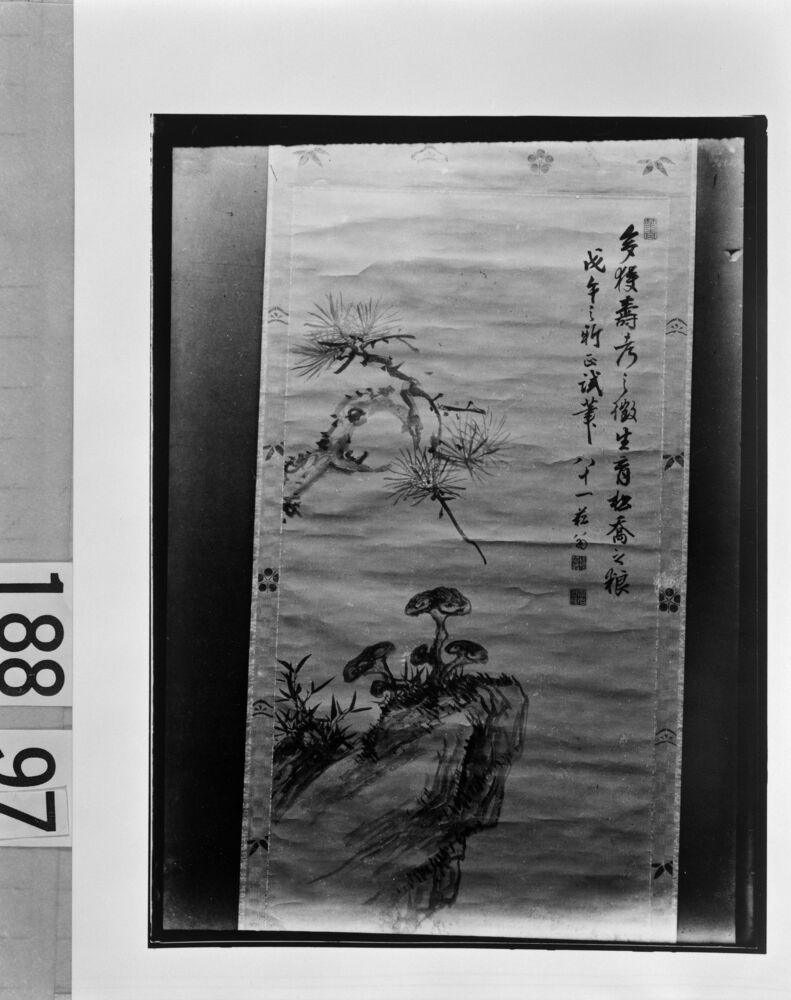 多獲壽考之徴生育松喬之粮
戊午之新正試筆 八十一荘翁
188
97